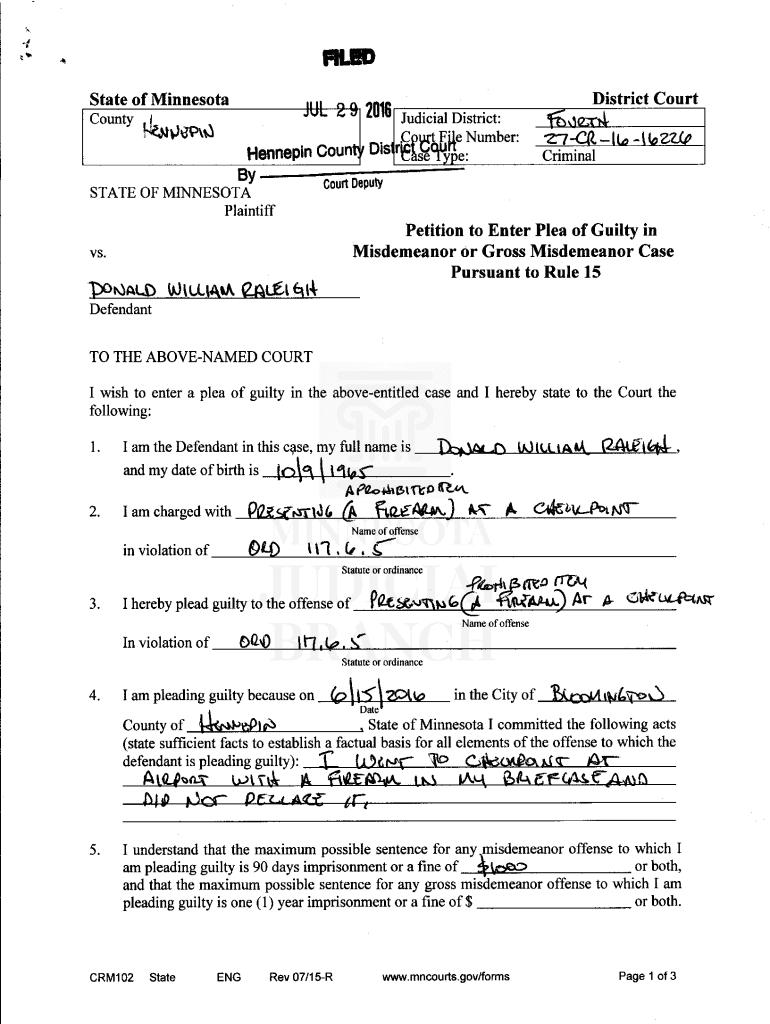 FILED
State of Minnesota District Court
JUL 29 2016
County HENNEPIN Judicial District: FOURTH
Court File Number: 27-CR-16-16226
Hennepin County District Court
Case Type: Criminal
By
Court Deputy
STATE OF MINNESOTA
Plaintiff
Petition to Enter Plea of Guilty in
vs. Misdemeanor or Gross Misdemeanor Case
Pursuant to Rule 15
DONALD WILLIAM RALEIGH
Defendant
TO THE ABOVE-NAMED COURT
I wish to enter a plea of guilty in the above-entitled case and I hereby state to the Court the
following:
1. I am the Defendant in this case, my full name is DONALD WILLIAM RALEIGH,
and my date of birth is 10/9/1965.
A PROHIBITED ITEM
2. I am charged with PRESENTING (A FIREARM) AT A CHECKPOINT
Name of offense
in violation of ORD 117.6.5
Statute or ordinance
PROHIBITED ITEM
3. I hereby plead guilty to the offense of PRESENTING (A FIREARM) AT A CHECKPOINT
Name of offense
In violation of ORD 117.6.5
Statute or ordinance
4. I am pleading guilty because on 6/15/2016 in the City of BLOOMINGTON
Date
County of HENNEPIN, State of Minnesota I committed the following acts
(state sufficient facts to establish a factual basis for all elements of the offense to which the
defendant is pleading guilty): I WENT TO CHECKPOINT AT
AIRPORT WITH A FIREARM IN MY BRIEFCASE AND
DID NOT DECLARE IT.
5. I understand that the maximum possible sentence for any misdemeanor offense to which I
am pleading guilty is 90 days imprisonment or a fine of $1000 or both,
and that the maximum possible sentence for any gross misdemeanor offense to which I am
pleading guilty is one (1) year imprisonment or a fine of $ or both.
MINNESOTA
JUDICIAL
BRANCH
CRM102 State ENG Rev 07/15-R www.mncourts.gov/forms Page 1 of 3